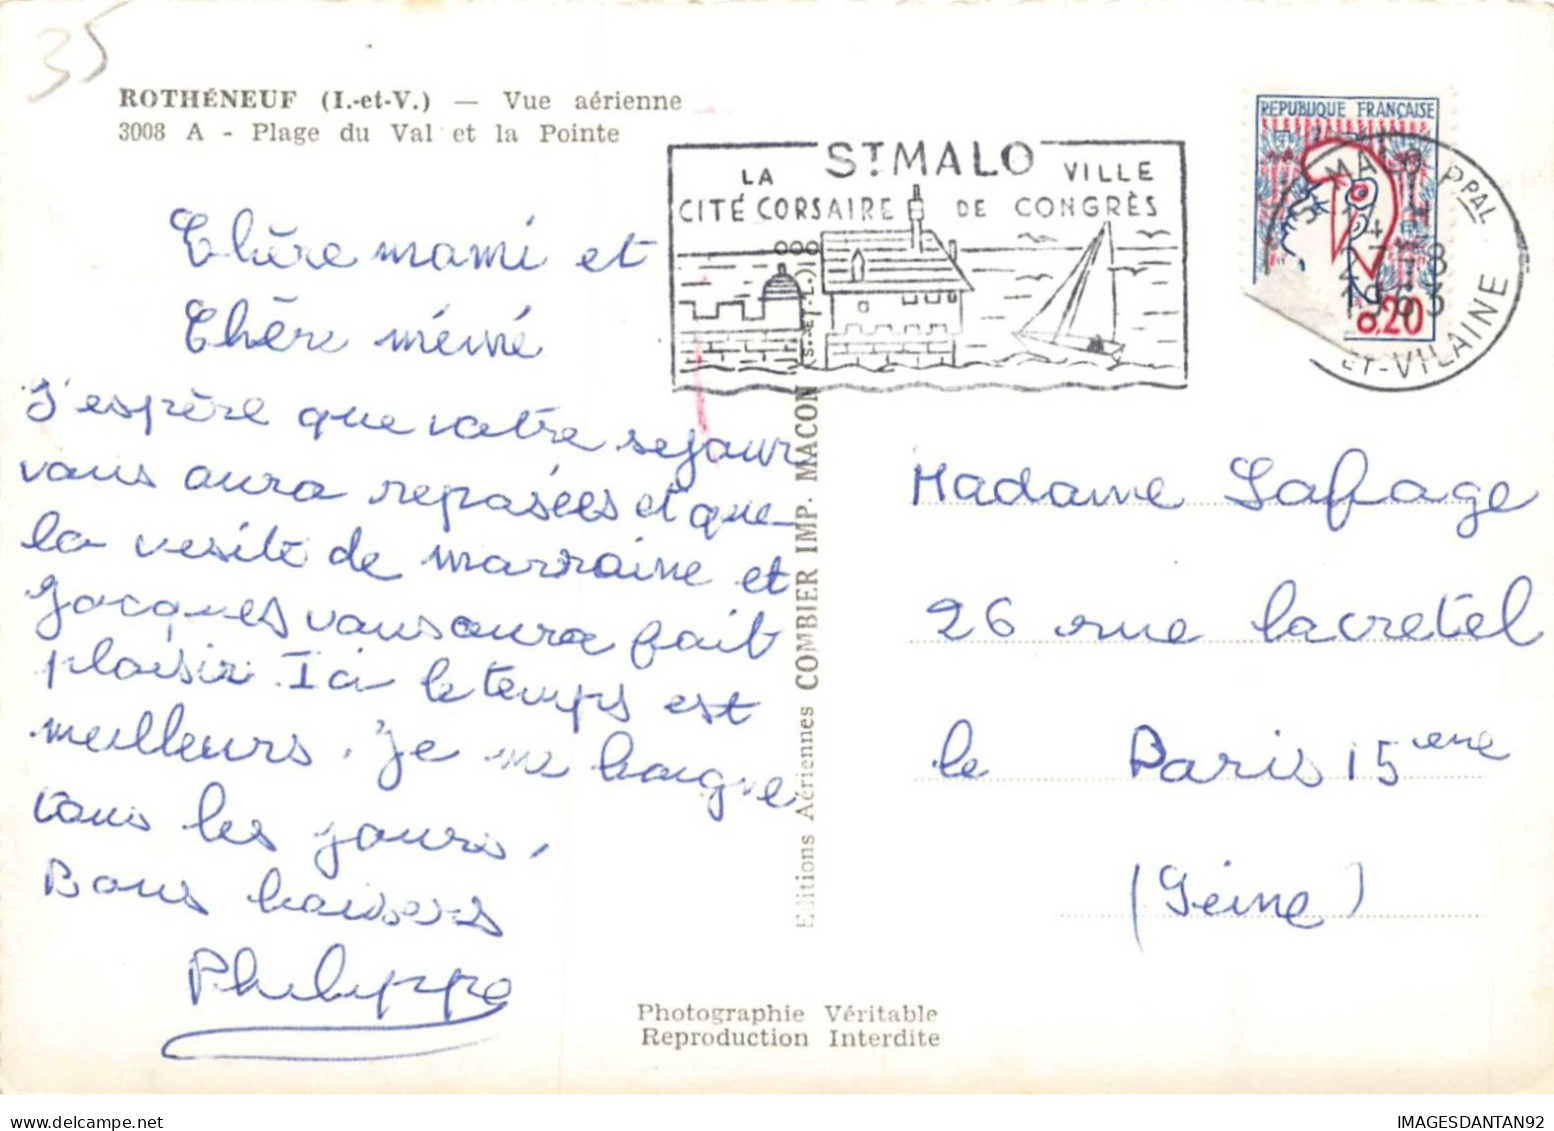 35
ROTHÉNEUF (I.-et-V.) — Vue aérienne
3008 A - Plage du Val et la Pointe
Chère mami et
Chère mémé
J'espère que votre sejour
vous aura reposées et que
la vesite de marraine et
Jacques vous aura fait
plaisir. Ici le temps est
meilleurs. Je me baigne
tous les jours.
Bons baisers
Philippe
ST MALO
LA VILLE
CITÉ CORSAIRE DE CONGRÈS
REPUBLIQUE FRANÇAISE
0,20
ST MALO PPAL
1963
ET-VILAINE
Editions Aériennes COMBIER IMP. MACON (S.-et-L.)
Madame Lafage
26 rue lacretel
le Paris 15 eme
(Seine)
Photographie Véritable
Reproduction Interdite
IMAGESDANTAN92